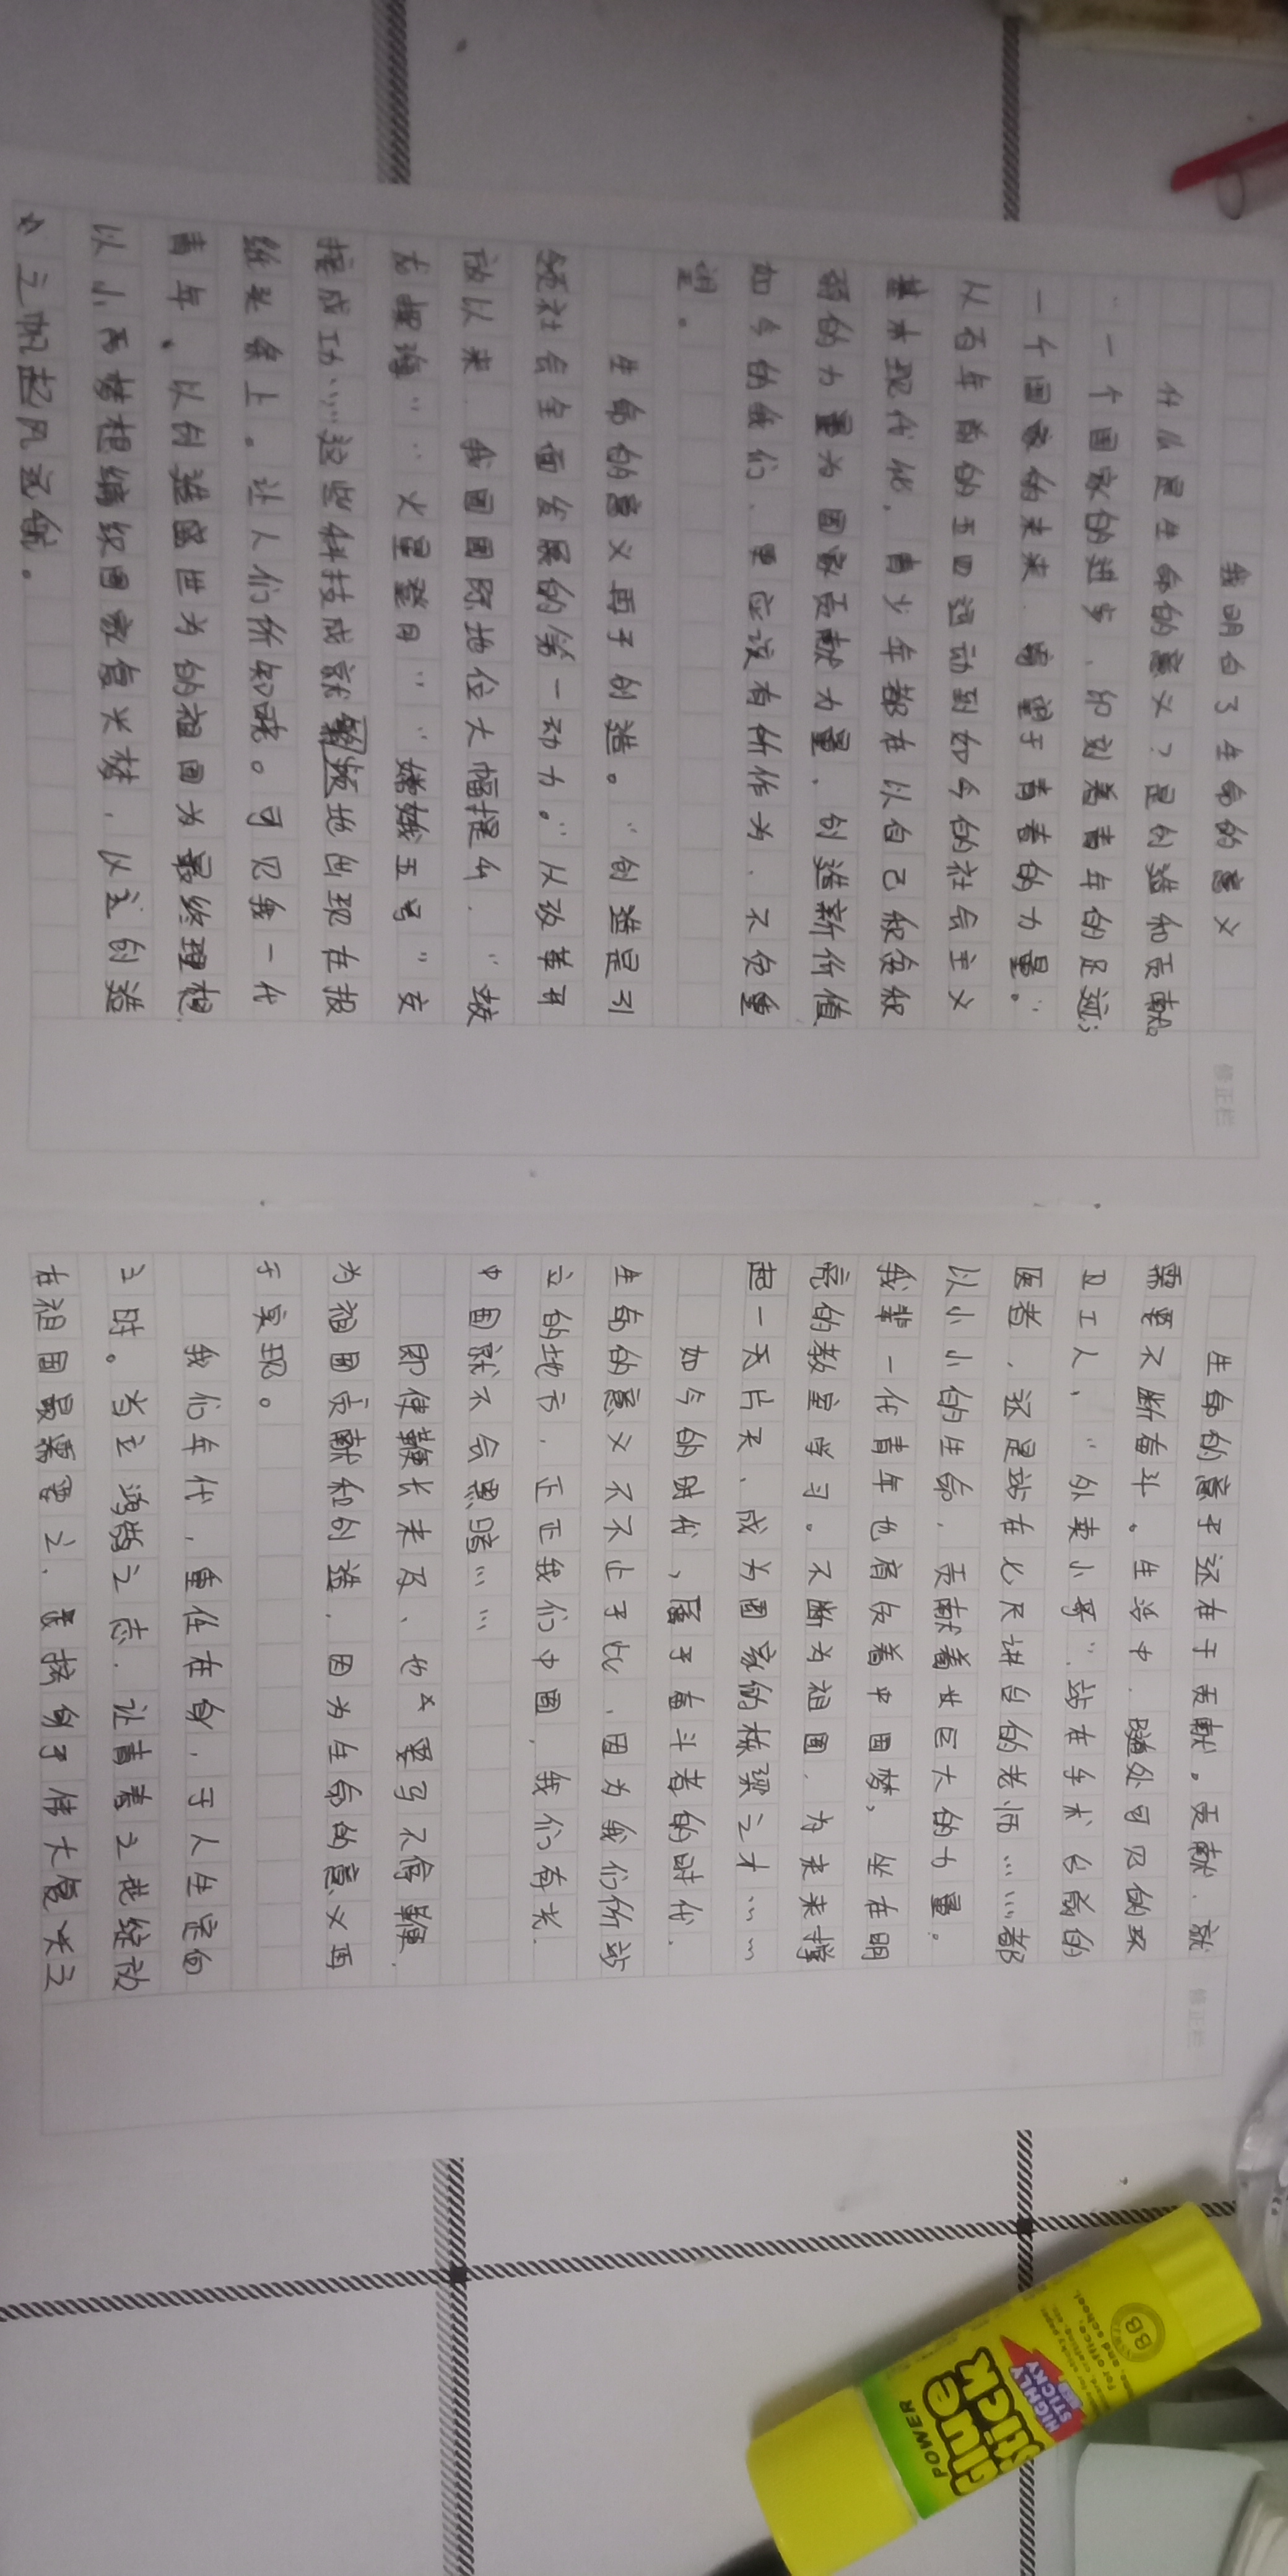 我明白了生命的意义
什么是生命的意义？是创造和贡献。
“一个国家的进步，印刻着青年的足迹；
一个国家的未来，寄望于青春的力量。”
从百年前的五四运动到如今的社会主义
基本现代化，青少年都在以自己微食微
弱的力量为国家贡献力量，创造新价值
如今的我们，更应该有所作为，不负重
望。
生命的意义再于创造。“创造是引
领社会全面发展的第一动力。”从改革开
放以来，我国国际地位大幅提升，“
”“火星登日”“嫦娥五号”
接成功……这些科技成就频地出现在报
纸头条上。让人们价知晓。可见我一代
青年，以创造盛世为的祖国为最终理想，
以小而梦想编织国家复兴梦，以立创造
之帆起风远航。
修正栏
生命的意于还在于贡献。贡献，就
需要不断奋斗。生活中，随处可见的环
卫工人，“外卖小哥”，站在手术台前的
医者，还是站在七尺讲台的老师……都
以小小的生命，贡献着世巨大的力量。
我辈一代青年也肩负着中国梦，坐在明
亮的教室学习。不断为祖国，为未来撑
起一天片天，成为国家的栋梁之才……
如今的时代，属于奋斗者的时代，
生命的意义不不止于此，因为我们所站
立的地方，正正我们中国，我们有光，
中国就不会黑暗……
即使鞭长未及，也要马不停鞭，
为祖国贡献和创造，因为生命的意义再
于实现。
我们年代，重任在身，于人生定向
之时。当立鸿鹄之志，让青春之花绽放
在祖国最需要之，投身于伟大复兴之
修正栏
POWER
Glue
Stick
HIGHLY
STICKY
BB
and school.